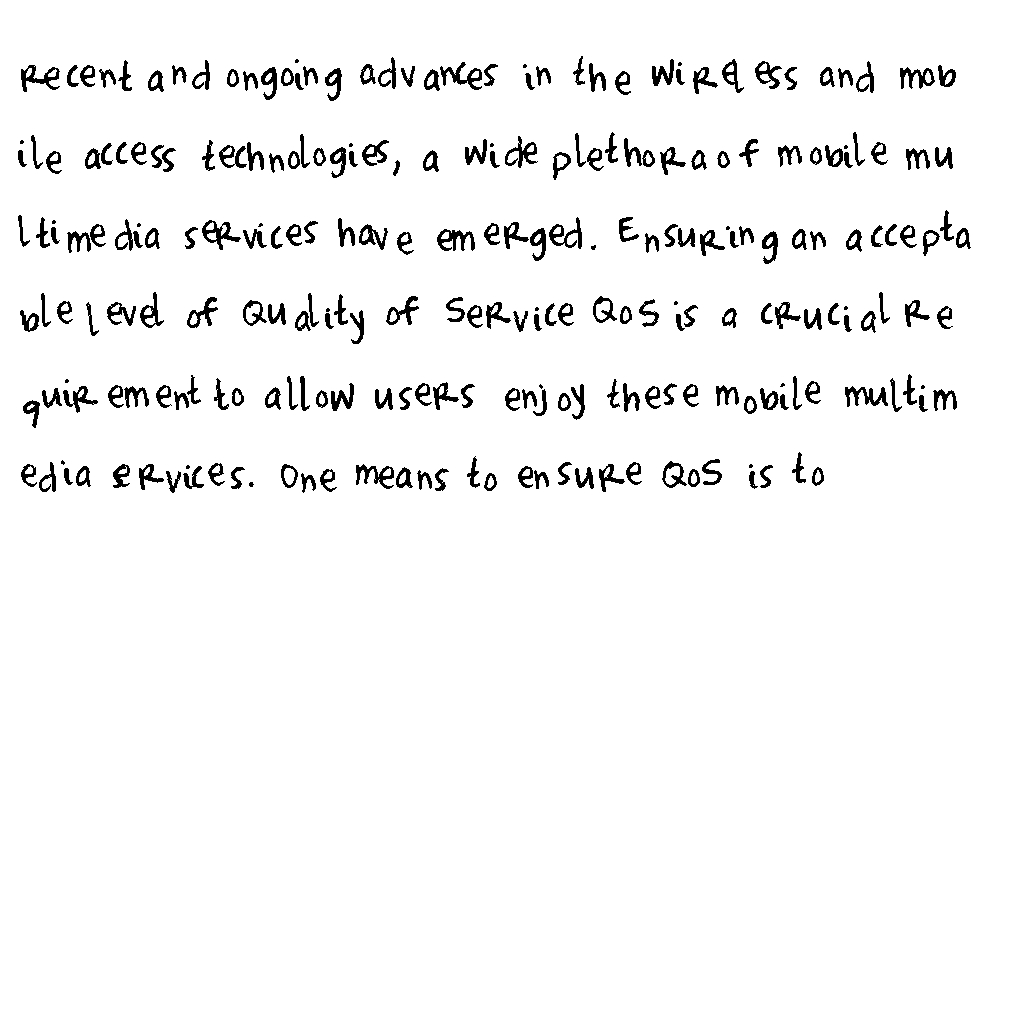 Recent and ongoing advances in the wireless and mob
ile access technologies, a wide plethora of mobile mu
ltimedia services have emerged. Ensuring an accepta
ble level of Quality of Service QoS is a crucial re
quirement to allow users enjoy these mobile multim
edia services. One means to ensure QoS is to